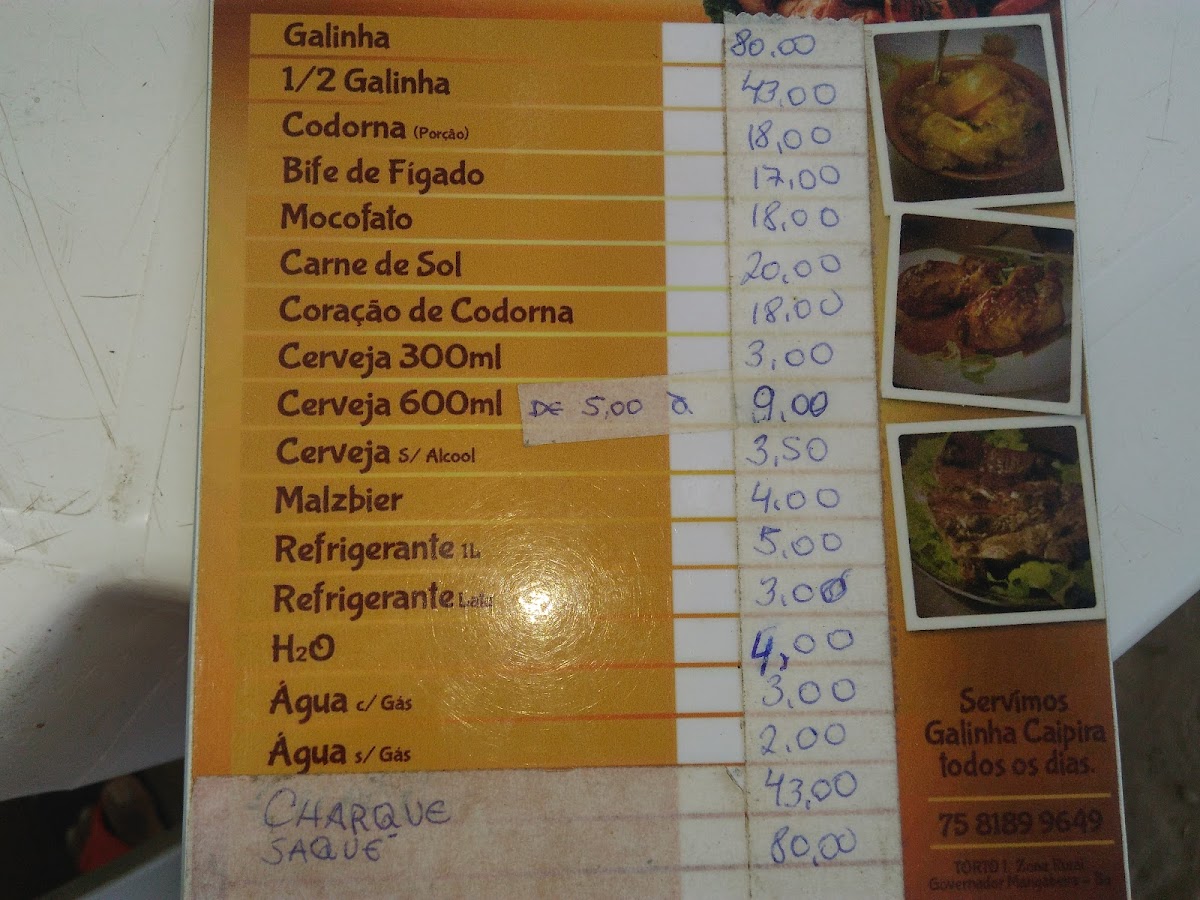 Galinha 80.00
1/2 Galinha 43,00
Codorna (Porção) 18,00
Bife de Fígado 17,00
Mocofato 18,00
Carne de Sol 20,00
Coração de Codorna 18,00
Cerveja 300ml 3,00
Cerveja 600ml DE 5,00 à 9,00
Cerveja S/ Alcool 3,50
Malzbier 4.00
Refrigerante 1L 5,00
Refrigerante Lata 3,00
H2O 4,00
Água c/ Gás 3,00
Água s/ Gás 2,00
CHARQUE 43,00
SAQUE 80,00
Servimos
Galinha Caipira
todos os dias.
75 8189 9649
TORTO I, Zona Rural
Governador Mangabeira - Ba